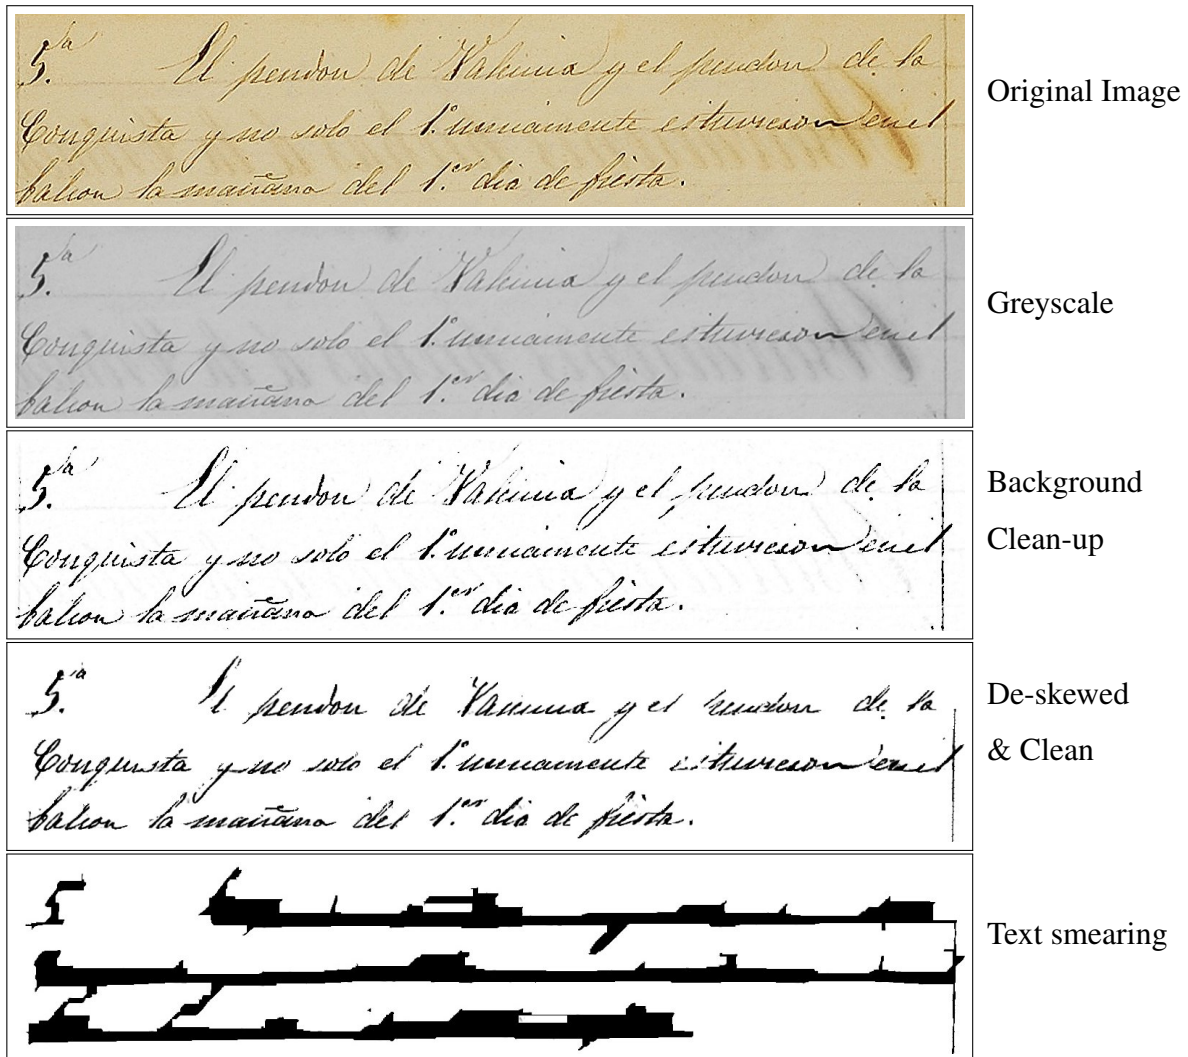 5.ª El pendon de Valencia y el pendon de la
Conquista y no solo el 1.º unicamente estuvieron en el
balcon la mañana del 1.er dia de fiesta.
Original Image
5.ª El pendon de Valencia y el pendon de la
Conquista y no solo el 1.º unicamente estuvieron en el
balcon la mañana del 1.er dia de fiesta.
Greyscale
5.ª El pendon de Valencia y el pendon de la
Conquista y no solo el 1.º unicamente estuvieron en el
balcon la mañana del 1.er dia de fiesta.
Background
Clean-up
5.ª El pendon de Valencia y el pendon de la
Conquista y no solo el 1.º unicamente estuvieron en el
balcon la mañana del 1.er dia de fiesta.
De-skewed
& Clean
Text smearing